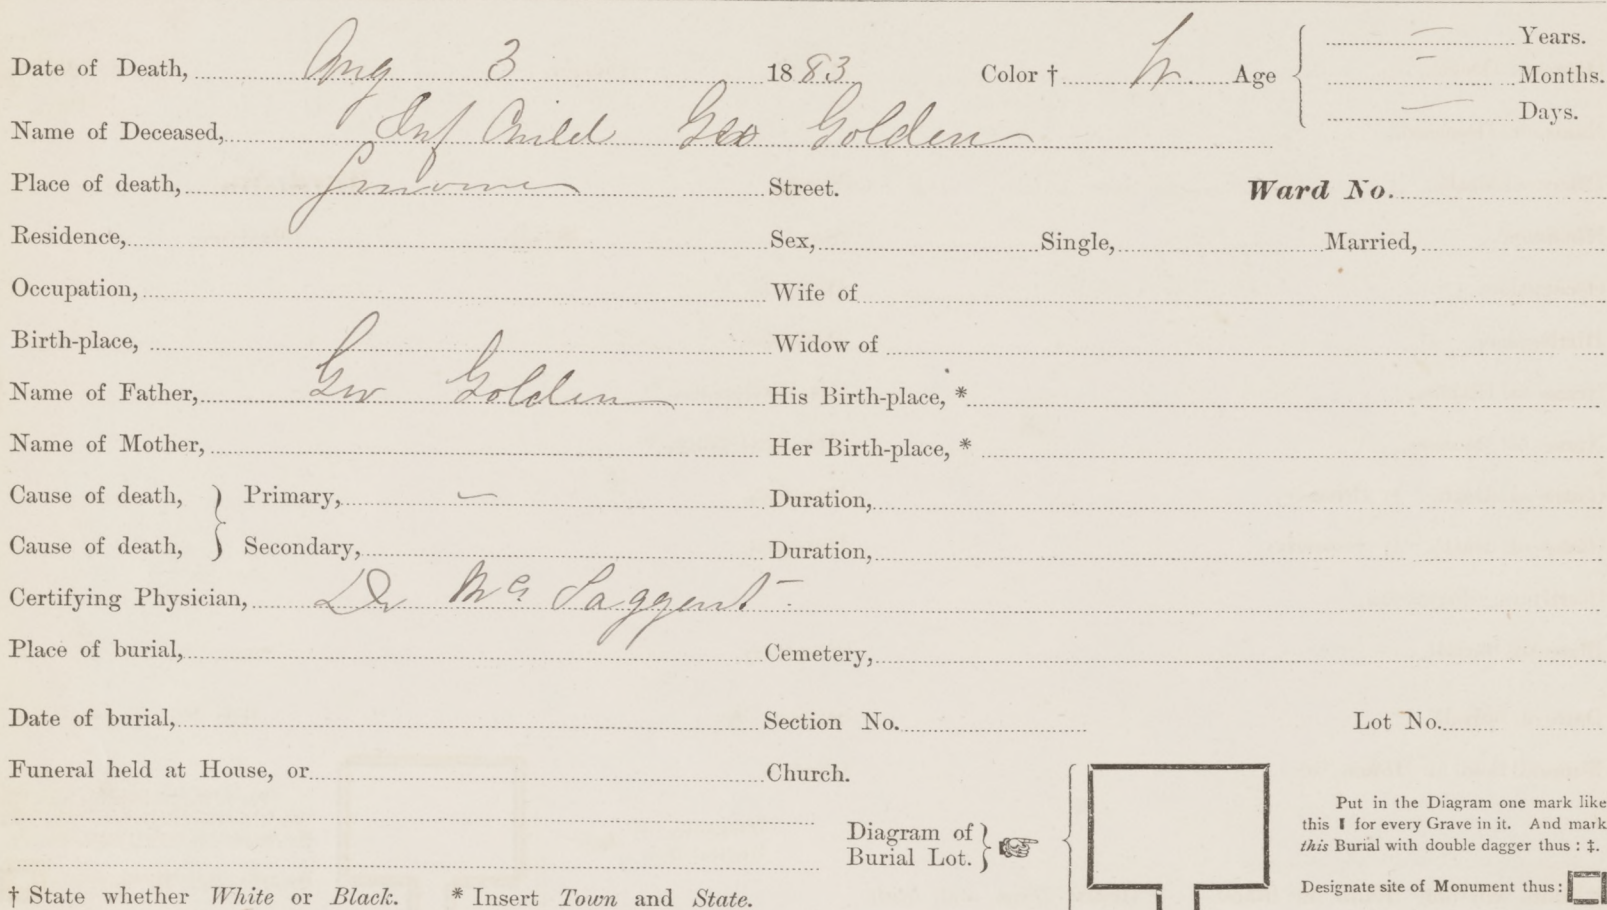 Date of Death, Aug 3 1883 Color † W. Age — Years.
— Months.
— Days.
Name of Deceased, Inf Child Geo Golden
Place of death, Street. Ward No.
Residence, Sex, Single, Married,
Occupation, Wife of
Birth-place, Widow of
Name of Father, Geo Golden His Birth-place, *
Name of Mother, Her Birth-place, *
Cause of death, Primary, — Duration,
Cause of death, Secondary, Duration,
Certifying Physician, Dr Mc Saggent
Place of burial, Cemetery,
Date of burial, Section No. Lot No.
Funeral held at House, or Church.
Diagram of
Burial Lot.
Put in the Diagram one mark like
this ▮ for every Grave in it. And mark
this Burial with double dagger thus : ‡.
Designate site of Monument thus :
† State whether White or Black. * Insert Town and State.